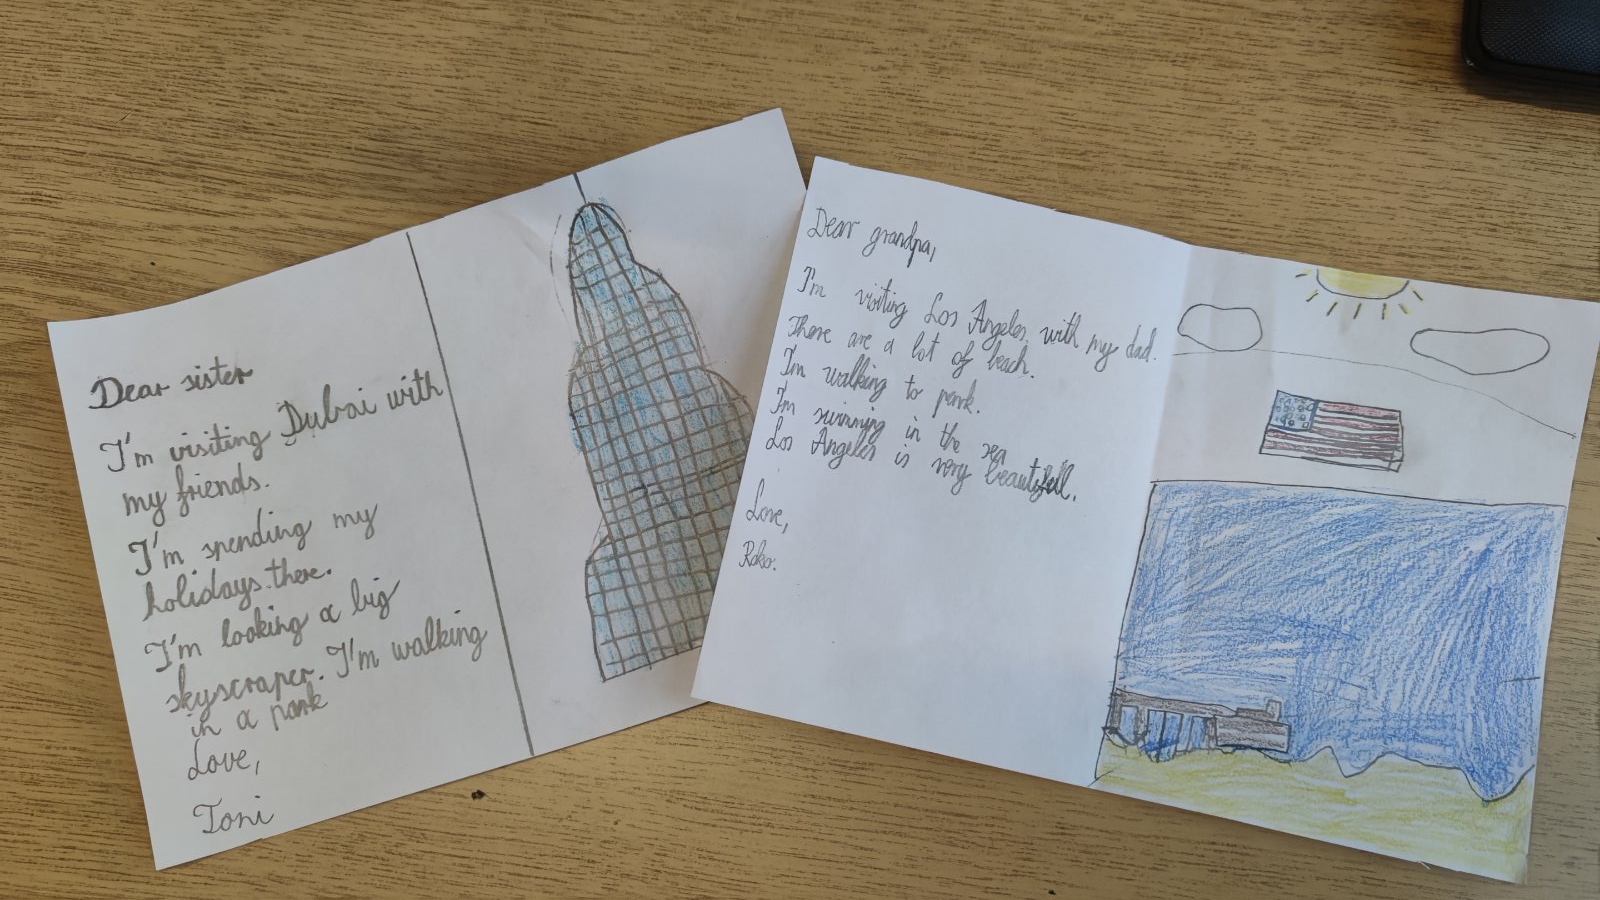 Dear sister
I'm visiting Dubai with
my friends.
I'm spending my
holidays there.
I'm looking a big
skyscraper. I'm walking
in a park
Love,
Toni
Dear grandpa,
I'm visiting Los Angeles with my dad.
There are a lot of beach.
I'm walking to park.
I'm swinning in the sea
Los Angeles is very beautifull.
Love,
Roko.